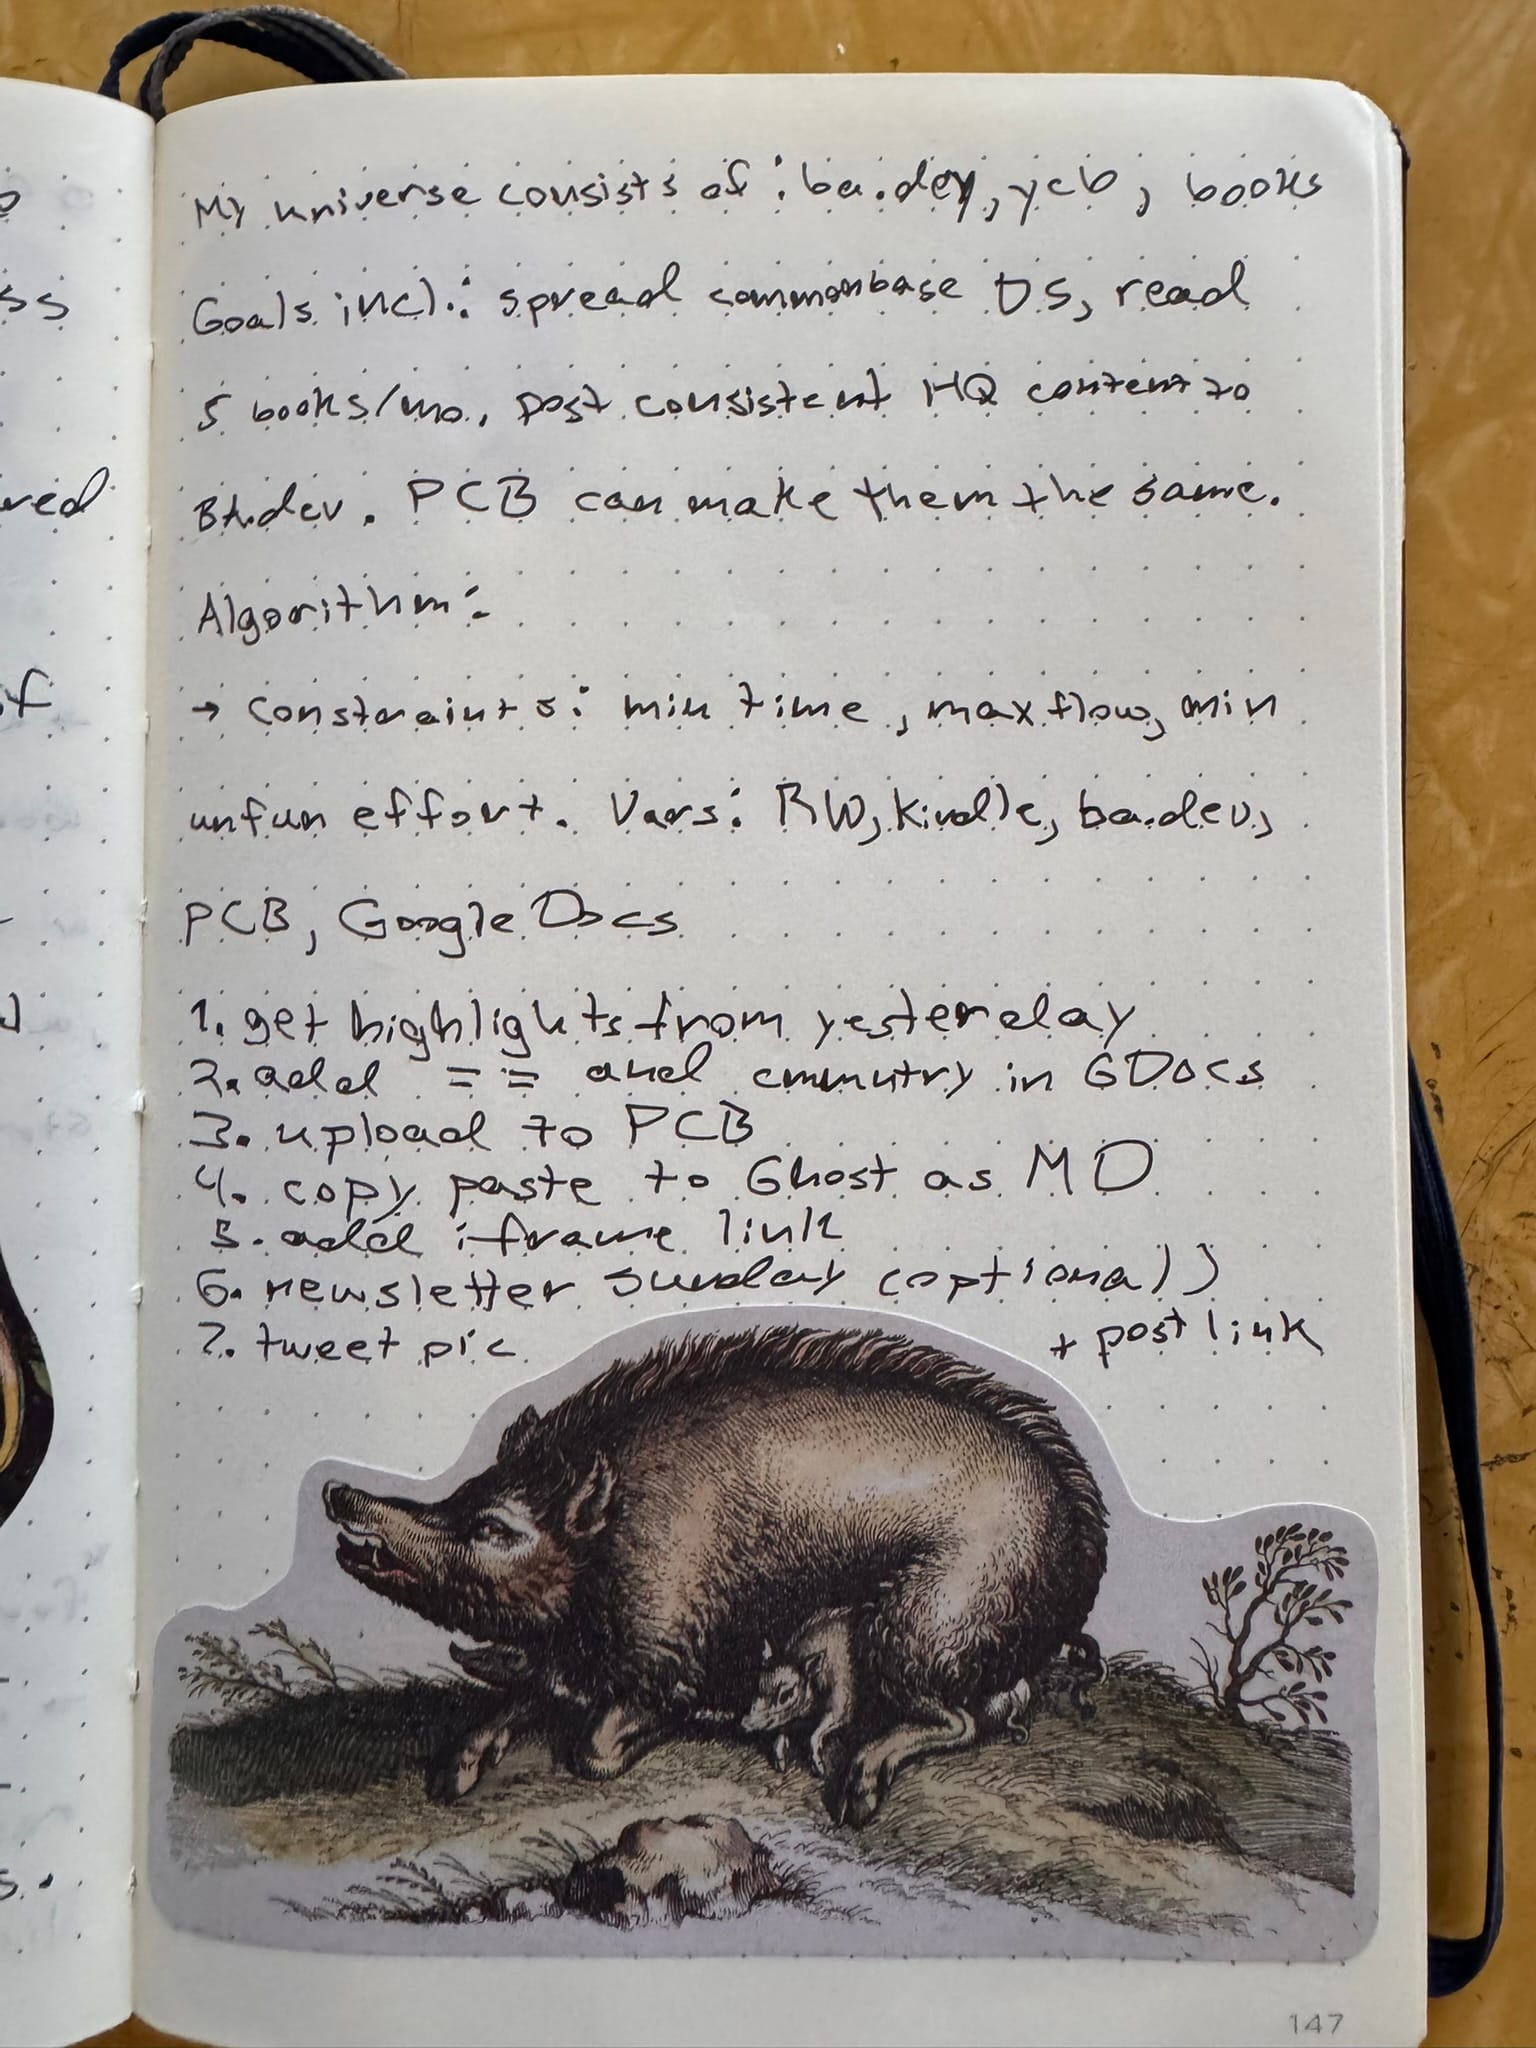 My universe consists of: ba.dev, ycb, books
Goals incl.: spread commonbase DS, read
5 books/mo, post consistent HQ content to
BA.dev. PCB can make them the same.
Algorithm:
→ Constraints: min time, max flow, min
unfun effort. Vars: RW, Kindle, ba.dev,
PCB, Google Docs
1. get highlights from yesterday
2. add == and cmmntry in GDOCS
3. upload to PCB
4. copy paste to Ghost as MD
5. add iframe link
6. newsletter sunday (optional)
7. tweet pic + post link
ss
red
if
s.
147